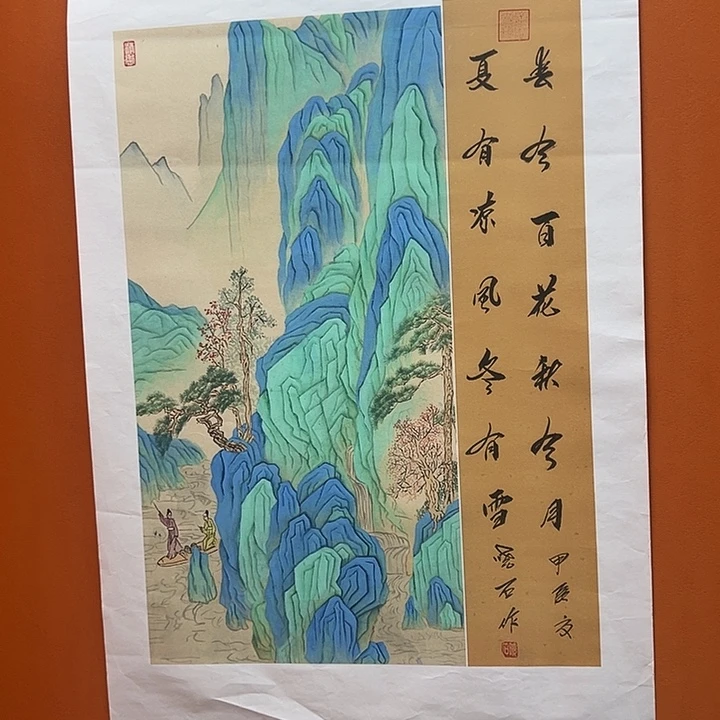 春有百花秋有月
甲辰夏
夏有凉風冬有雪
石作